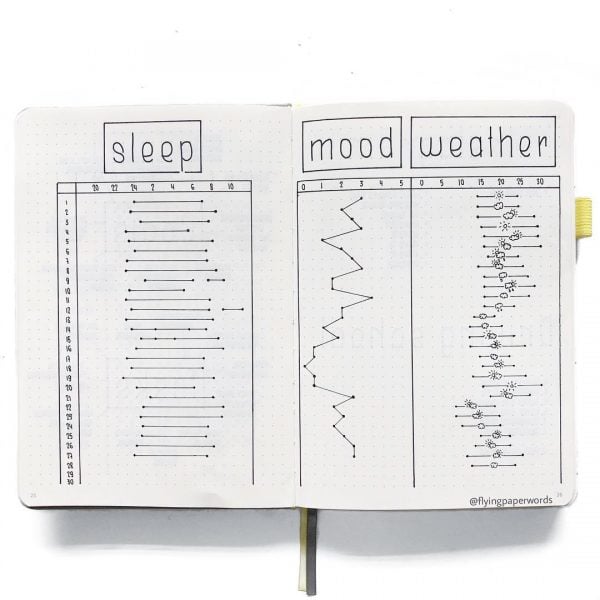 sleep
mood
weather
20 22 24 2 4 6 8 10
0 1 2 3 4 5
0 5 10 15 20 25 30
1
2
3
4
5
6
7
8
9
10
11
12
13
14
15
16
17
18
19
20
21
22
23
24
25
26
27
28
29
30
25
@flyingpaperwords
26